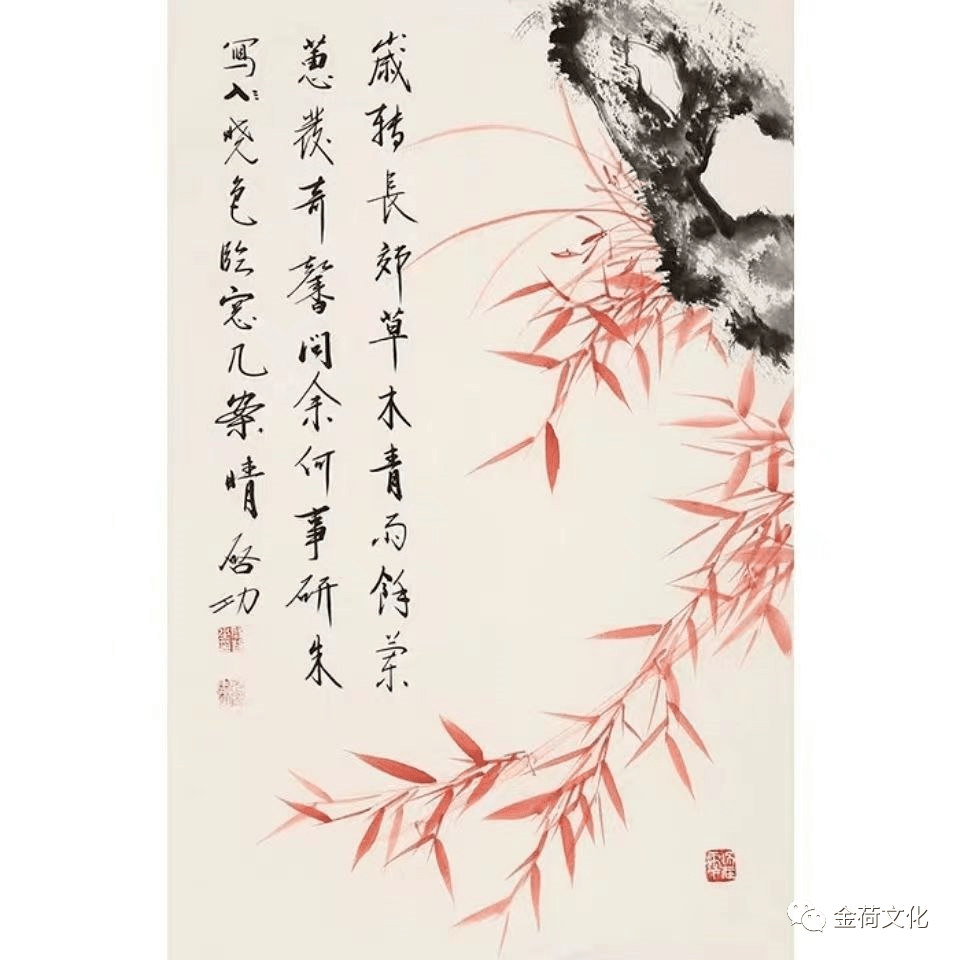 歲轉長郊草木青雨餘蘭
蕙發奇馨問余何事研朱
寫入曉色臨窓几案晴 啓功
金荷文化